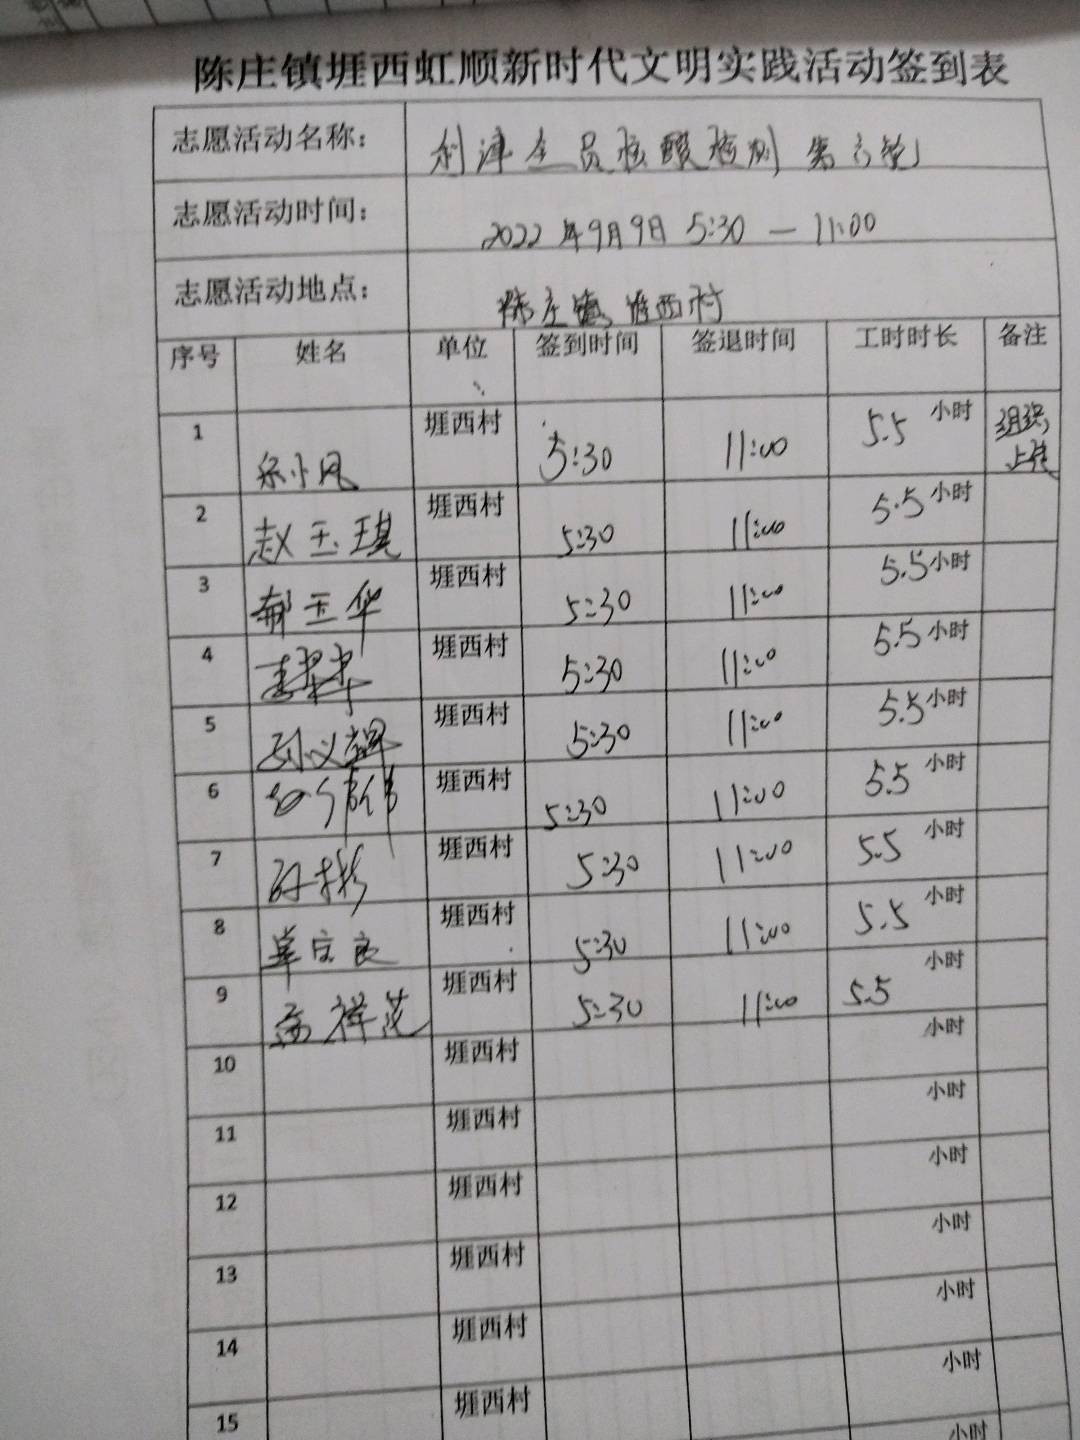 陈庄镇堐西虹顺新时代文明实践活动签到表
志愿活动名称： 利津全员核酸检测 第六轮
志愿活动时间： 2022年9月9日 5:30 — 11:00
志愿活动地点： 陈庄镇堐西村
序号 姓名 单位 签到时间 签退时间 工时时长 备注
1 小凤 堐西村 5:30 11:00 5.5 小时 组织, 上传
2 赵玉琪 堐西村 5:30 11:00 5.5 小时
3 郝玉华 堐西村 5:30 11:00 5.5 小时
4 堐西村 5:30 11:00 5.5 小时
5 堐西村 5:30 11:00 5.5 小时
6 堐西村 5:30 11:00 5.5 小时
7 堐西村 5:30 11:00 5.5 小时
8 单庆良 堐西村 5:30 11:00 5.5 小时
9 祥范 堐西村 5:30 11:00 5.5 小时
10 堐西村 小时
11 堐西村 小时
12 堐西村 小时
13 堐西村 小时
14 堐西村 小时
15 堐西村 小时